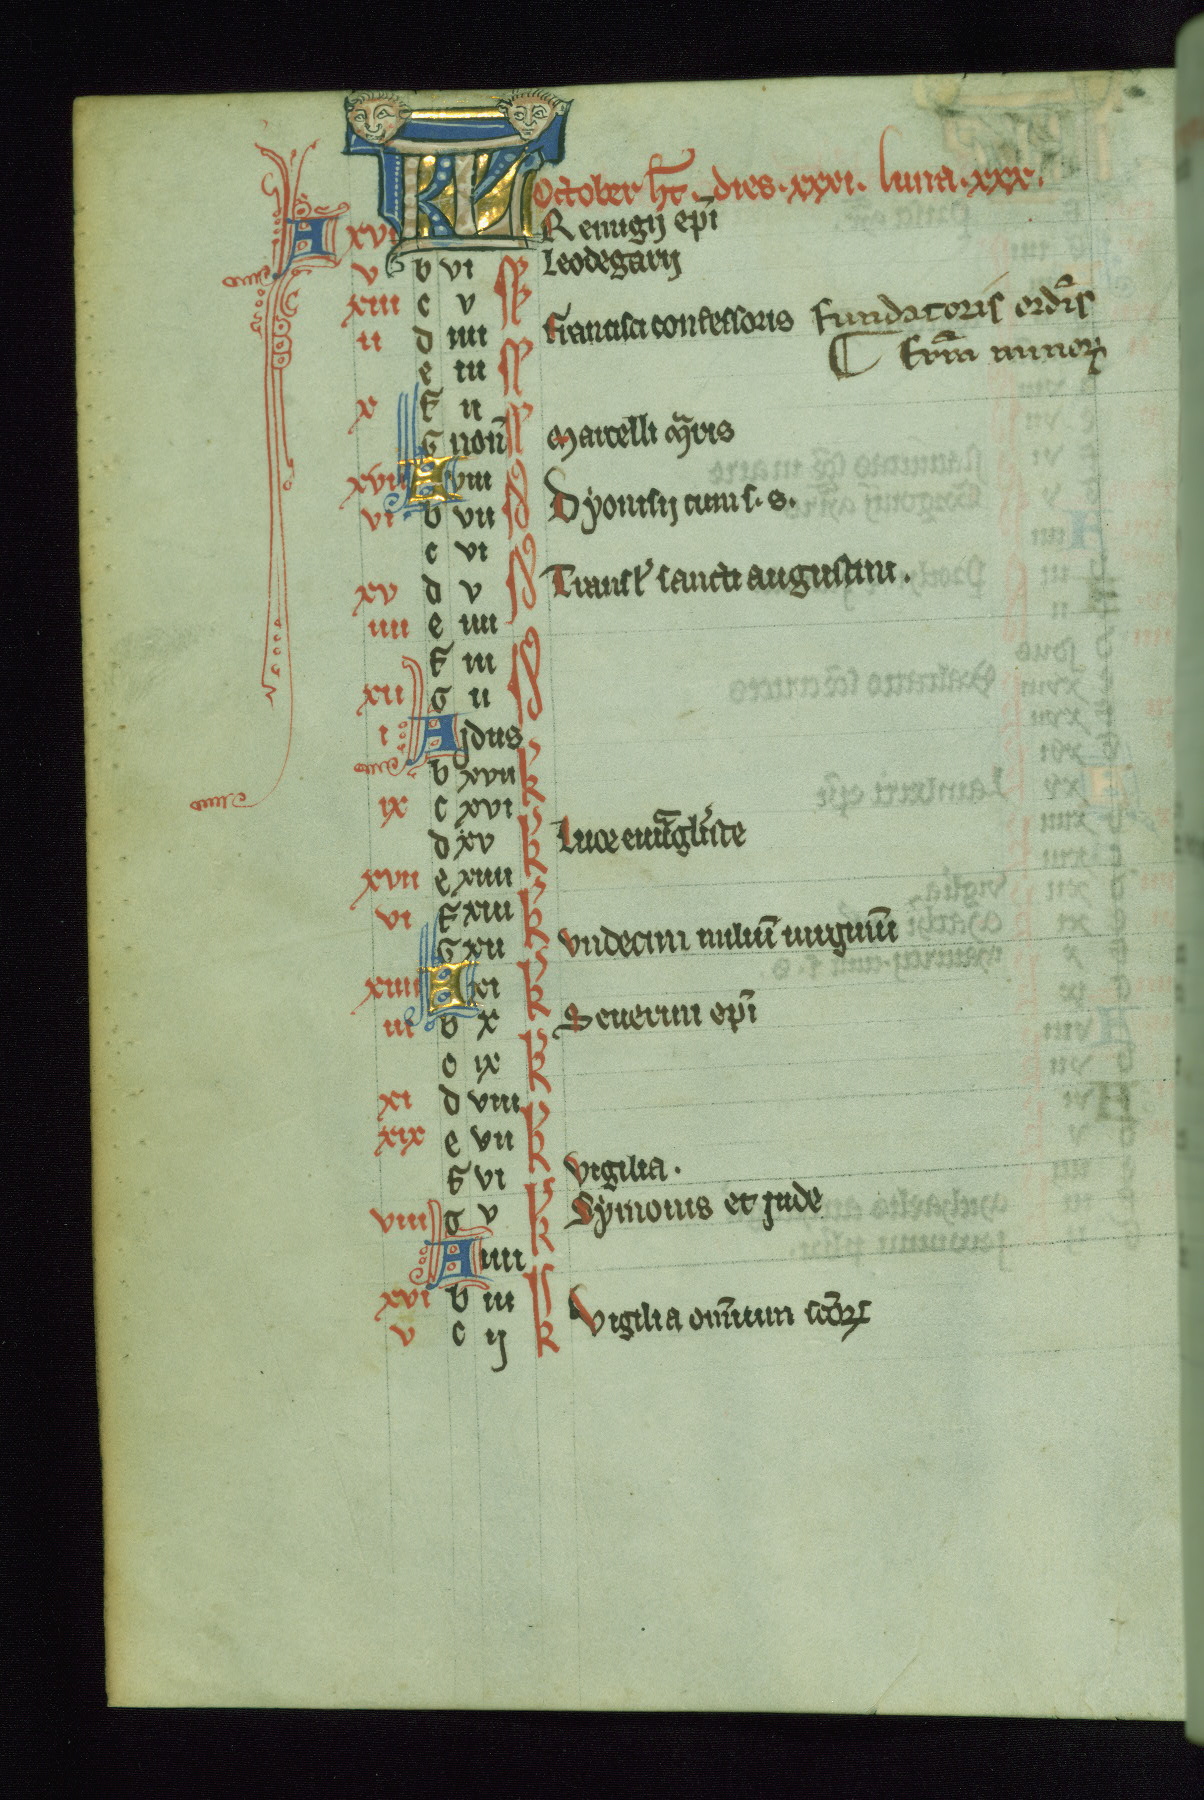 KL October ht̄. dies. xxxi. luna. xxx.
A xvi Remigij ep̄i
v b vi N Leodegarij
xiii c v
ii d iiii N Francisci confessoris fundatoris ordīs
e iii N fr̄m minor
x f ii
G non̄ Marcelli mr̄is
xvii A viii
vi b vii Dẏonisij cum s. s.
c vi
xv d v Transl' sancti augustini.
iiii e iiii
f iii
xii G ii
i A jdus
b xvii K
ix c xvi
d xv K Luce euūagliste
xvii e xiiii
vi f xiii K
G xii Vndecim miliū uirginū
xiiii A xi K
iii b x Seuerini ep̄i
c ix K
xi d viii
xix e vii K
f vi vigilia.
viii G v K Sẏmonis et jude
A iiii
xvi b iii Vigilia om̄ium sc̄or
v c ij K